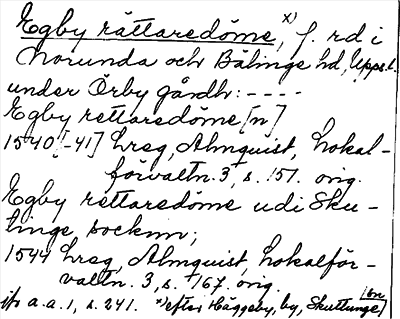 Egby rättaredöme, x) f. rd i
Norunda och Bälinge hd, Upps. l.
under Örby gårdh: - - - -
Egby rettaredöme [n]
1540[-41] hrsg, Almquist, Lokal-
förvaltn. 3, s. 151. orig.
Egby rettaredöme udi Sku-
linge socknn;
1544 hrsg, Almquist, Lokalför-
valtn. 3, s. 167. orig.
jfr a.a. 1, s. 241. x) efter Häggeby, by, Skuttunge sn